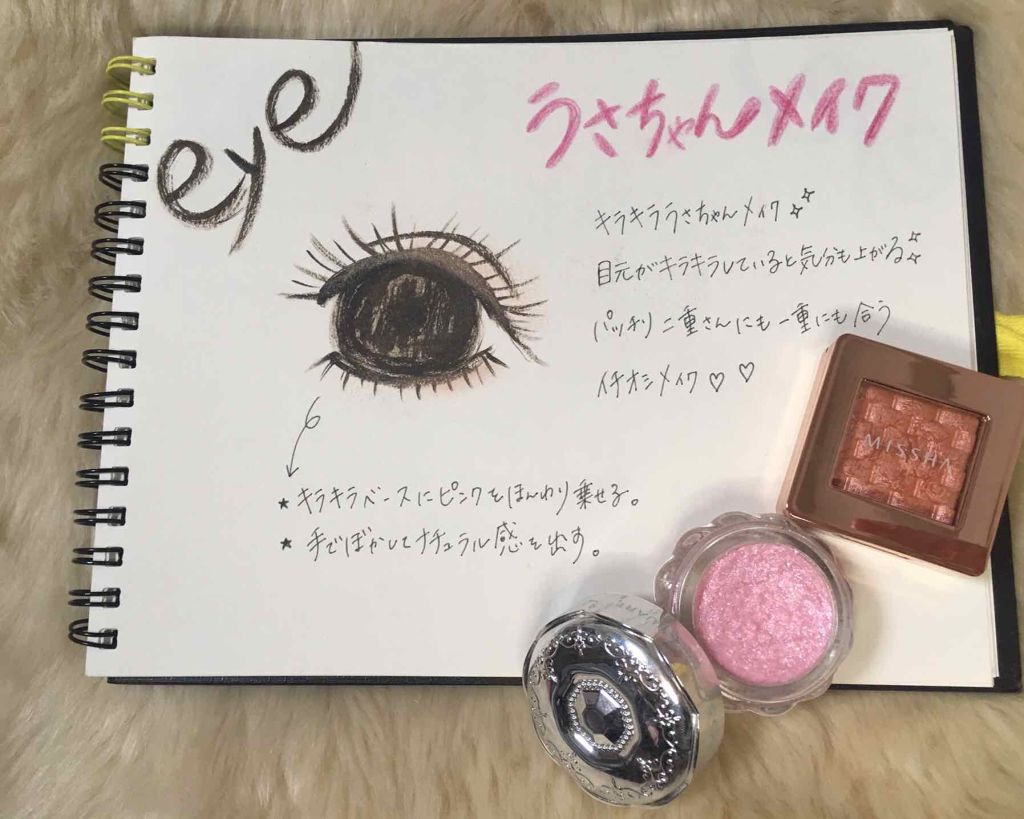 eye
うさちゃんメイク
キラキラうさちゃんメイク
目元がキラキラしていると気分も上がる
パッチリ二重さんにも一重にも合う
イチオシメイク♡ ♡
★キラキラベースにピンクをほんわり乗せる。
★手でぼかしてナチュラル感を出す。
MISSHA